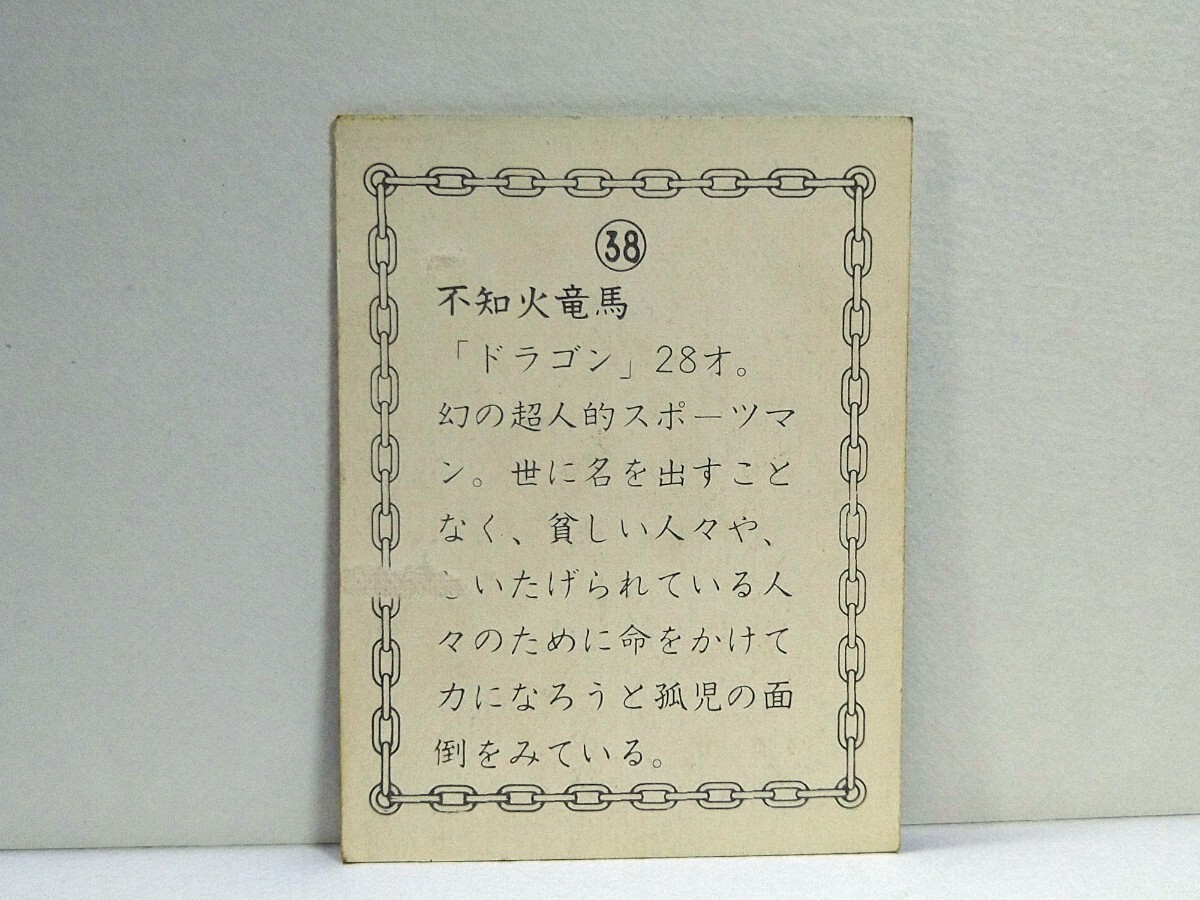 38
不知火竜馬
「ドラゴン」28才。
幻の超人的スポーツマ
ン。世に名を出すこと
なく、貧しい人々や、
しいたげられている人
々のために命をかけて
力になろうと孤児の面
倒をみている。